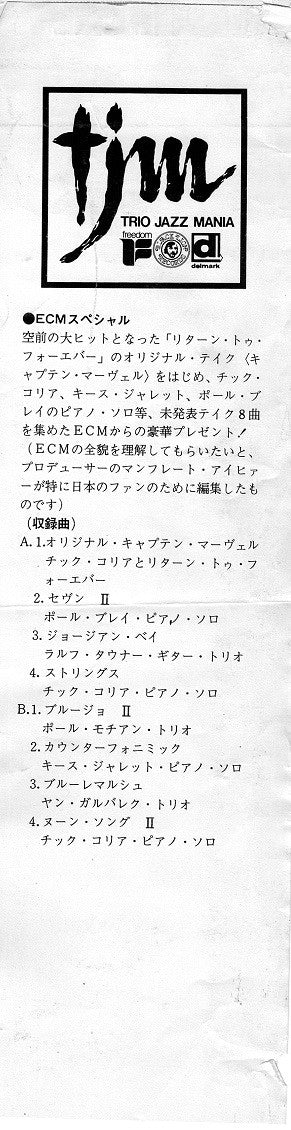 tjm
TRIO JAZZ MANIA
freedom
F
d
delmark
●ECMスペシャル
空前の大ヒットとなった「リターン・トゥ・
フォーエバー」のオリジナル・テイク〈キ
ャプテン・マーヴェル〉をはじめ、チック・
コリア、キース・ジャレット、ポール・ブ
レイのピアノ・ソロ等、未発表テイク8曲
を集めたECMからの豪華プレゼント！
（ECMの全貌を理解してもらいたいと、
プロデューサーのマンフレート・アイヒァ
ーが特に日本のファンのために編集したも
のです）
（収録曲）
A.1.オリジナル・キャプテン・マーヴェル
チック・コリアとリターン・トゥ・フ
ォーエバー
2.セヴン Ⅱ
ポール・ブレイ・ピアノ・ソロ
3.ジョージアン・ベイ
ラルフ・タウナー・ギター・トリオ
4.ストリングス
チック・コリア・ピアノ・ソロ
B.1.ブルージョ Ⅱ
ポール・モチアン・トリオ
2.カウンターフォニミック
キース・ジャレット・ピアノ・ソロ
3.ブルーレマルシュ
ヤン・ガルバレク・トリオ
4.ヌーン・ソング Ⅱ
チック・コリア・ピアノ・ソロ